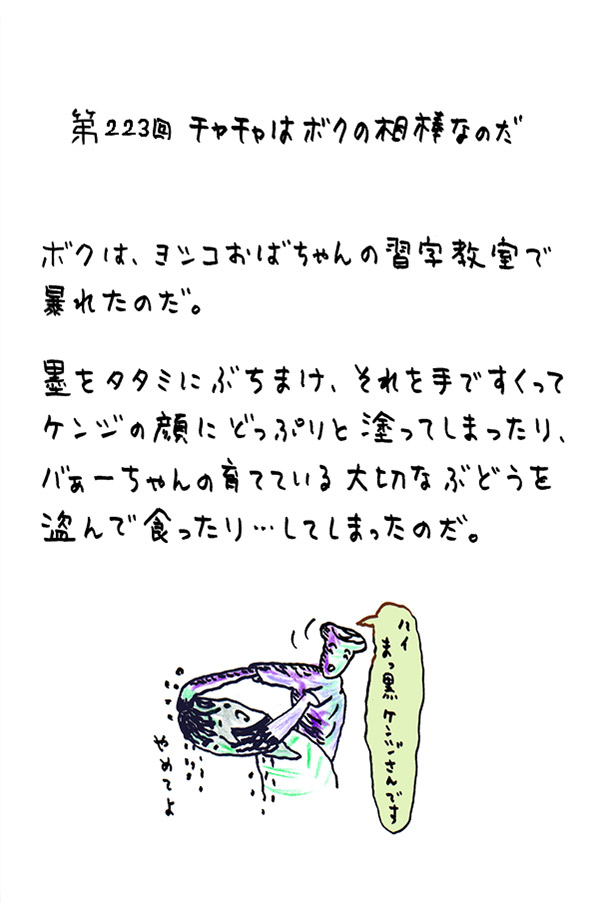 第223回 チャチャはボクの相棒なのだ
ボクは、ヨシコおばちゃんの習字教室で
暴れたのだ。
墨をタタミにぶちまけ、それを手ですくって
ケンジの顔にどっぷりと塗ってしまったり、
バぁーちゃんの育てている大切なぶどうを
盗んで食ったり…してしまったのだ。
ハイ
まっ黒ケンジさんです
やめてよ